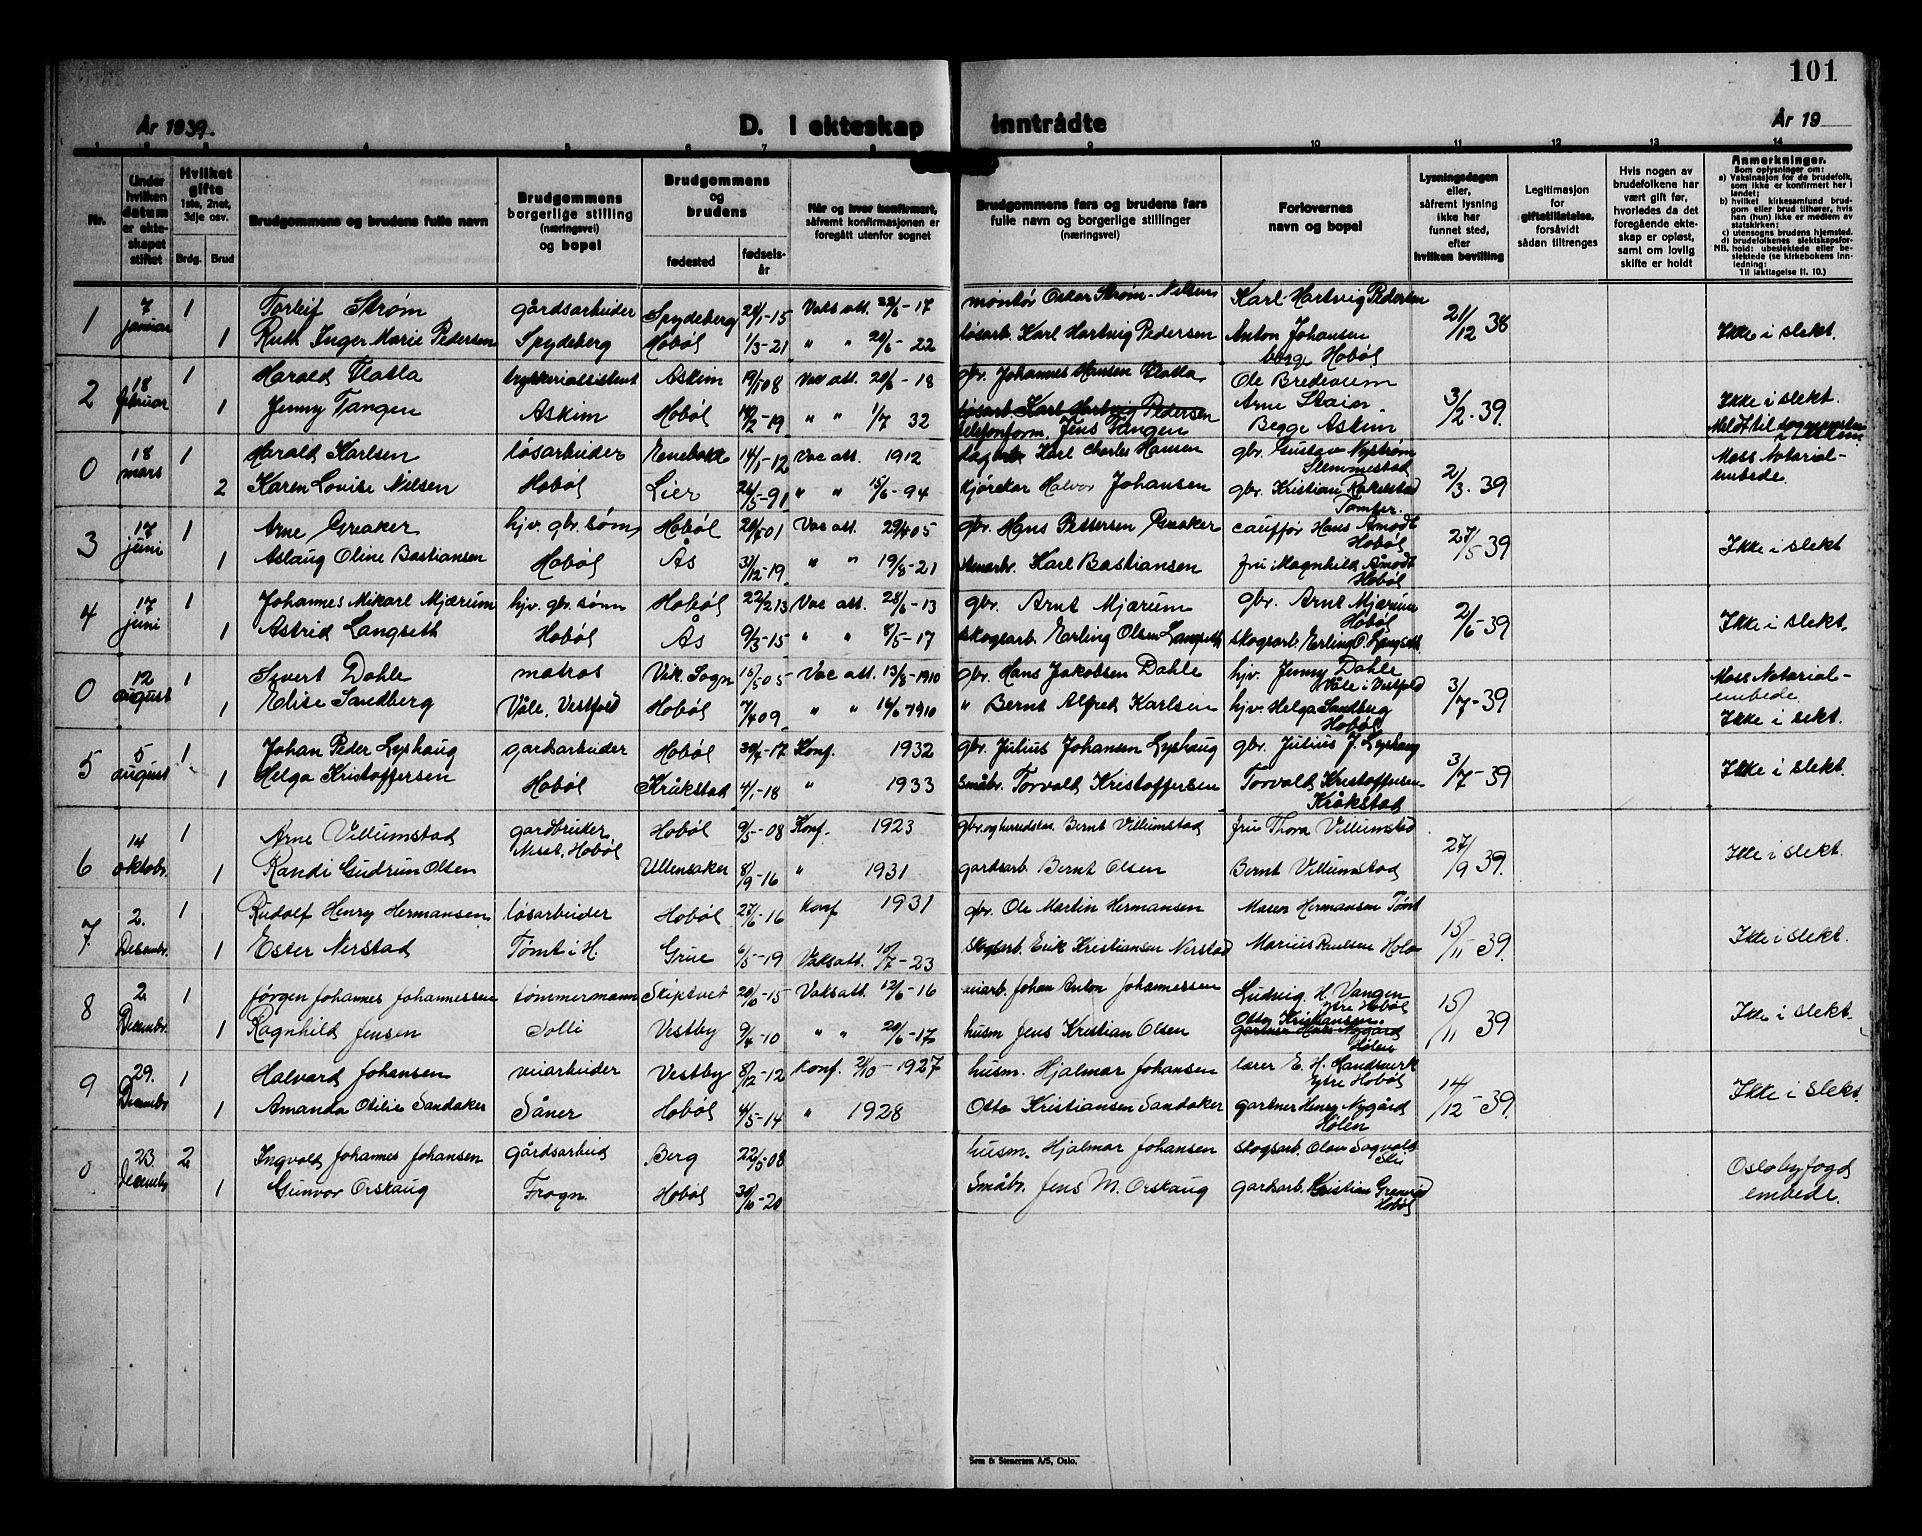 101
År 1939.
D. I ekteskap inntrådte
År 19
1 2 3 4 5 6 7 8 9 10 11 12 13 14
Nr.
Under hvilken datum er ekteskapet stiftet
Hvilket gifte 1ste, 2net, 3dje osv.
Brdg. Brud
Brudgommens og brudens fulle navn
Brudgommens borgerlige stilling (næringsvei) og bopel
Brudgommens og brudens
fødested
fødselsår
Når og hvor konfirmert, såfremt konfirmasjonen er foregått utenfor sognet
Brudgommens fars og brudens fars fulle navn og borgerlige stillinger (næringsvei)
Forlovernes navn og bopel
Lysningsdagen eller, såfremt lysning ikke har funnet sted, efter hvilken bevilling
Legitimasjon for giftetillatelse, forsåvidt sådan tiltrenges
Hvis nogen av brudefolkene har vært gift før, hvorledes da det foregående ekteskap er opløst, samt om lovlig skifte er holdt
Anmerkninger.
Som oplysninger om:
a) Vaksinasjon for de brudefolk, som ikke er konfirmert her i landet;
b) hvilket kirkesamfund brudgom eller brud tilhører, hvis han (hun) ikke er medlem av statskirken;
c) utensogns brudens hjemsted.
d) brudefolkenes slektskapsforhold: ubeslektede eller beslektede (se kirkebokens innledning:
NB.
Til iakttagelse II. 10.)
1 7 januar 1 Torleif Strøm gårdsarbeider Spydeberg 24/1-15 Vaks att. 22/6-17 montør Oskar Strøm-Nilsen Karl Hartvig Pedersen 21/12 38
1 Ruth Inger Marie Pedersen Spydeberg Hobøl 1/3-21 " " 20/6-22 løsarb. Karl Hartvig Pedersen Anton Johansen Hobøl Ikke i slekt.
2 18 februar 1 Harald Flatla Askim 19/5 08 Vac att. 20/6-18 gbr. Johannes Hansen Flatla Ole Bredevum 3/2.39
1 Jenny Tangen Askim Hobøl -19 " " 1/7 32 løsarb Karl Hartvig Pedersen Arne Ikke i slekt.
telefonform. Jens Tangen Begge Askim Meldt til sognepresten i Askim
0 18 mars 1 Harald Karlsen løsarbeider 14/1-12 Vac att. 1912 Karl Charles Hansen gbr. Gustav Nystrøm Slemmestad 2/3.39 Moss Notarial-
2 Karen Lovise Nilsen Hobøl Lier 26/5-91 " " 15/6-94 kjørekar Halvor Johansen gbr. Kristian Rakelstad Tomter. embede.
3 17 juni 1 Arne Greaker hjv. gbr. sønn Hobøl 01 Vac att. 29/4 05 gbr. Hans Pettersen Greaker cauffør Hans Åmodt Hobøl 27/5-39
1 Aslaug Oline Bastiansen Hobøl Ås 31/12-19 " " 19/8-21 stenarbr. Karl Bastiansen fru Magnhild Åmodt Hobøl Ikke i slekt
4 17 juni 1 Johannes Mikael Mjærum hjv. gbr. sønn Hobøl 22/2 13 Vac att. 28/6-13 gbr. Arnt Mjærum gbr. Arnt Mjærum Hobøl 2/6-39
1 Astrid Langseth Hobøl Ås 9/3-15 " " 8/5-17 skogsarb. Erling Olsen Langseth skogsarb. Erling O. Langseth Ikke i slekt.
0 12 august 1 Sivert Dahle matros Vik. Sogn 15/5 05 Vac att. 13/8-1910 gbr. Hans Jakobsen Dahle hjv. Jenny Dahle Våle i Vestfold 3/7-39 Moss Notarial-
1 Elise Sandberg Våle, Vestfold Hobøl 7/4 09 " " 16/6 1910 " Bernt Alfred Karlsen hjv. Helga Sandberg Hobøl embede. Ikke i slekt.
5 5 august 1 Johan Peder Lyshaug gardsarbeider Hobøl 17 Konf. 1932 gbr. Julius Johansen Lyshaug gbr. Julius J. Lyshaug 3/7-39
1 Helga Kristoffersen Hobøl Kråkstad 4/1-18 " 1933 Småbr. Torvald Kristoffersen Torvald Kristoffersen Kråkstad Ikke i slekt.
6 14 oktobr. 1 Arne Villumstad gardbruker Neset, Hobøl Hobøl 9/5-08 Konf. 1923 gbr. og herredskas. Bernt Villumstad fru Thora Villumstad 27/9 39.
1 Randi Gudrun Olsen Ullensaker 8/9-16 " 1931 gardsarb. Bernt Olsen Bernt Villumstad Ikke i slekt.
7. 2. Desembr. 1 Rudolf Henry Hermansen løsarbeider Hobøl 27/6-16 Konf 1931 gbr. Ole Martin Hermansen Maren Hermansen Tomt 15/11-39.
1 Ester Nerstad Tomt i H. Grue 6/5-19 Vaks att. 10/7-23 skogsarb. Erik Kristiansen Nerstad Marius Paulsen Ikke i slekt.
8 2. Decembr. 1 Jørgen Johannes Johannessen tømmermann Skiptvet -15 Vaks att. 12/6-16 Johan Anton Johannessen Ludvig H. Vangen Ytre Hobøl 15/11 39
1 Ragnhild Jensen Solli Vestby 9/4-10 " " 20/6-17 husm Jens Kristian Olsen Otto Kristiansen. gartner Nygård Hølen Ikke i slekt.
9 29. Decembr 1 Halvard Johansen veiarbeider Vestby 8/12-12 Konf. 2/10-1927 husm. Hjalmar Johansen lærer E. H. Handtverk Ytre Hobøl 14/12-39.
1 Amanda Otilie Sandaker Såner Hobøl 4/5-14 " 1928 Otto Kristiansen Sandaker gartner Henry Nygård Hølen Ikke i slekt.
0 23. Decembr 2 Ingvald Johannes Johansen gårdsarbeid Berg 22/5-08 husm. Hjalmar Johansen skogsarb. Olav Sagvold Ski Oslo byfogd
1 Gunvor Orskaug Frogn. Hobøl 30/10-20 Småbr. Jens M. Orskaug gardsarb. Kristian Hobøl embede.
Sem & Stenersen A/S, Oslo.